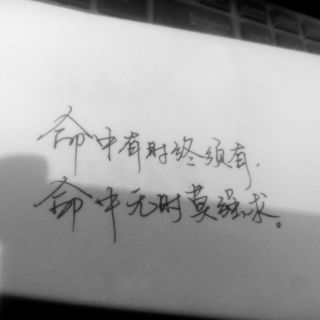 命中有时终须有，
命中无时莫强求。